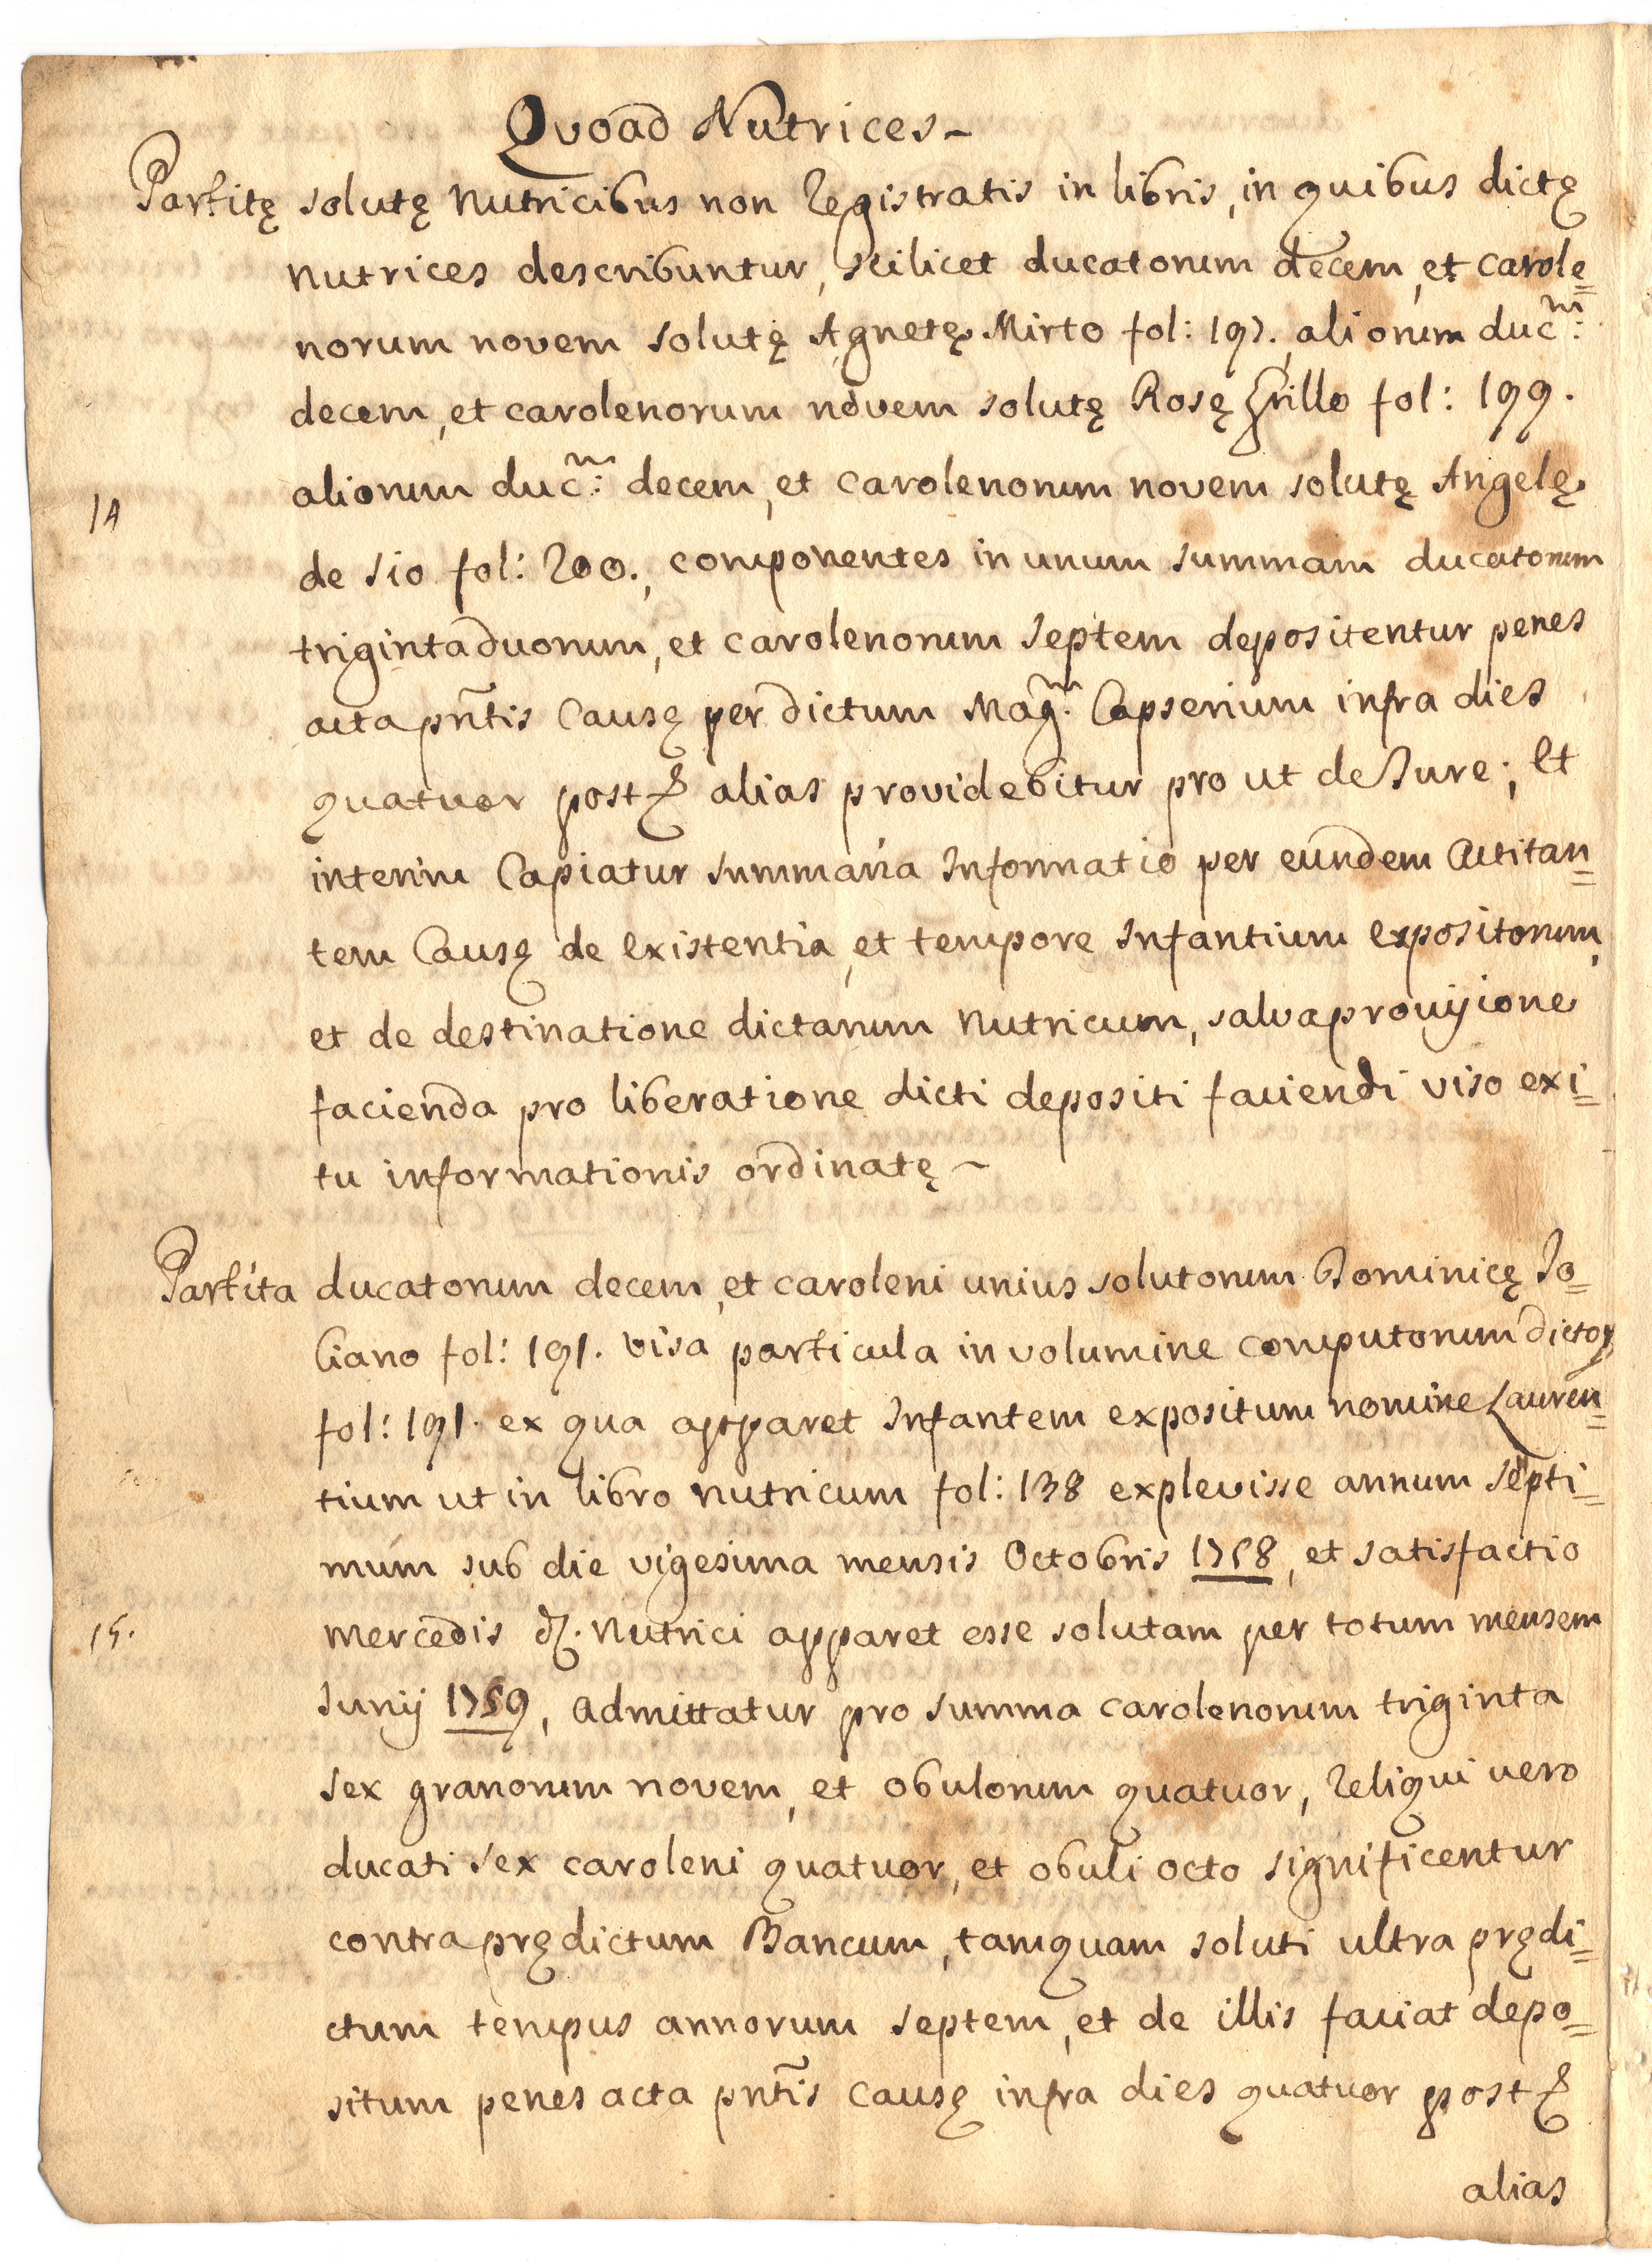 Quoad Nutrices -
Partitę solutę Nutricibus non Registratis in libris, in quibus dictę
nutrices describuntur, scilicet ducatorum decem, et carole=
norum novem solutę Agnetę Mirto fol: 197., aliorum duc.m:
decem, et carolenorum novem solutę Rosę Grillo fol: 199.
aliorum duc.m: decem, et carolenorum novem solutę Angelę
14
de Sio fol: 200., componentes in unum summam ducatorum
trigintaduorum, et carolenorum septem depositentur penes
acta pñtis Causę per dictum Mag.m Capserium infra dies
quatuor post & alias providebitur pro ut de Jure; Et
interim Capiatur summaria Informatio per eundem Actitan=
tem Causę de existentia, et tempore Infantium expositorum,
et de destinatione dictarum Nutricum, salva provisione
facienda pro liberatione dicti depositi faciendi viso exi=
tu informationis ordinatę -
Partita ducatorum decem, et caroleni unius solutorum Dominicę Jo=
Ciano fol: 191. visa particula in volumine computorum dictoꝝ
fol: 191. ex qua apparet Infantem expositum nomine Lauren=
tium ut in libro nutricum fol: 138 explevisse annum septi=
mum sub die vigesima mensis Octobris 1758, et satisfactio
15.
mercedis d. Nutrici apparet esse solutam per totum mensem
Junij 1759, admittatur pro summa carolenorum triginta
sex granorum novem, et obulorum quatuor, Reliqui vero
ducati sex caroleni quatuor, et obuli octo significentur
contra prędictum Bancum, tamquam soluti ultra prędi=
ctum tempus annorum septem, et de illis faciat depo=
situm penes acta pñtis Causę infra dies quatuor post &
alias